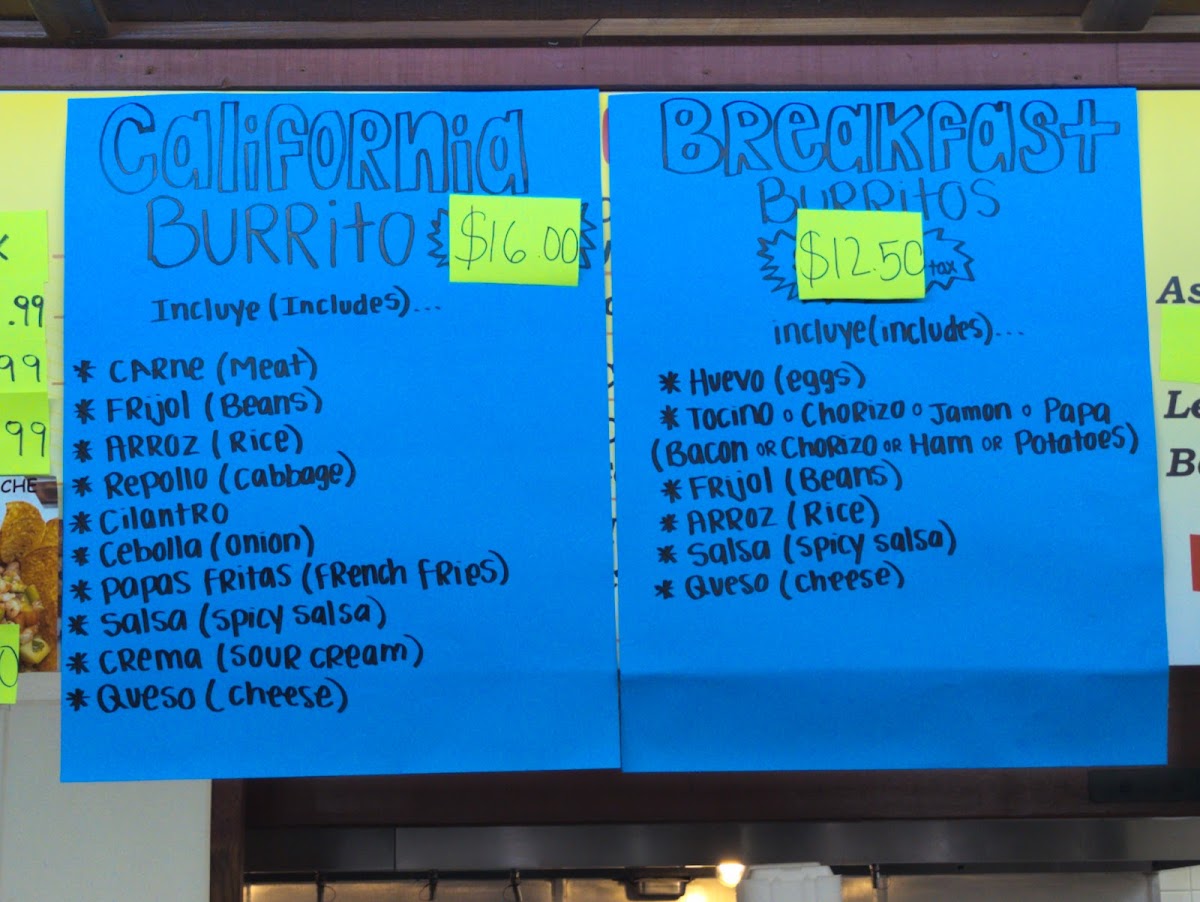 California
Burrito
$16.00
Incluye (Includes)...
* Carne (Meat)
* Frijol (Beans)
* Arroz (Rice)
* Repollo (Cabbage)
* Cilantro
* Cebolla (onion)
* Papas Fritas (French Fries)
* Salsa (spicy salsa)
* Crema (sour cream)
* Queso (cheese)
Breakfast
Burritos
$12.50
tax
incluye (includes)...
* Huevo (eggs)
* Tocino o Chorizo o Jamon o Papa
(Bacon or Chorizo or Ham or Potatoes)
* Frijol (Beans)
* Arroz (Rice)
* Salsa (spicy salsa)
* Queso (cheese)
.99
99
99
CHE